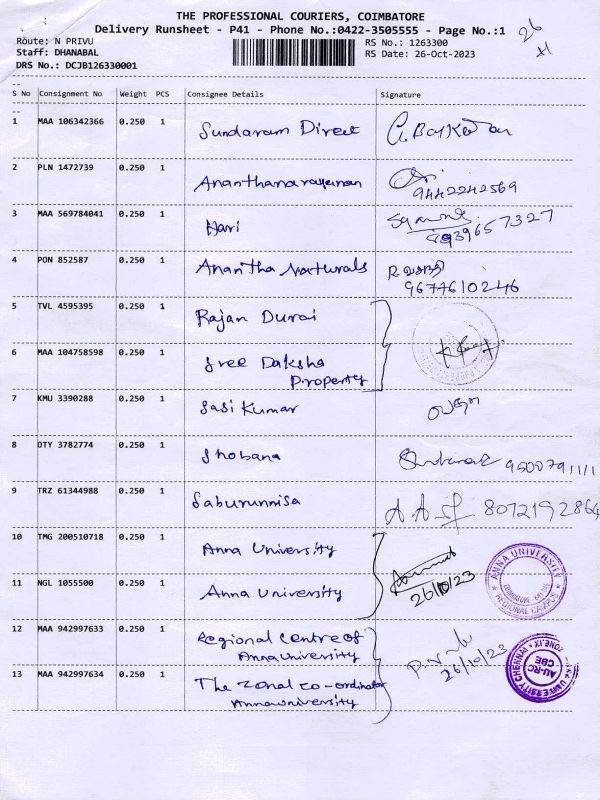 THE PROFESSIONAL COURIERS, COIMBATORE
Delivery Runsheet - P41 - Phone No.:0422-3505555 - Page No.:1
26
Route: N PRIVU
RS No.: 1263300
Staff: DHANABAL
RS Date: 26-Oct-2023
DRS No.: DCJB126330001
S No Consignment No Weight PCS Consignee Details Signature
1 MAA 106342366 0.250 1 Sundaram Direct
2 PLN 1472739 0.250 1 Ananthanarayanan
9442242569
3 MAA 569784041 0.250 1 Hari
939657327
4 PON 852587 0.250 1 Anantha Narturals R. வசந்தி
9677610246
5 TVL 4595395 0.250 1 Rajan Durai
6 MAA 104758598 0.250 1 Sree Daksha
Property
7 KMU 3390288 0.250 1 Sasi Kumar
8 OTY 3782774 0.250 1 Shobana 9500791111
9 TRZ 61344988 0.250 1 Saburunnisa 8072192864
10 TMG 200510718 0.250 1 Anna University
26/10/23
ANNA UNIVERSITY
REGIONAL CAMPUS
11 NGL 1055500 0.250 1 Anna University
12 MAA 942997633 0.250 1 Regional Centre of
Anna University
26/10/23
ANNA UNIVERSITY CHENNAI ZONE.IX
AU-RC
CBE
13 MAA 942997634 0.250 1 The zonal co-ordinator
Anna university